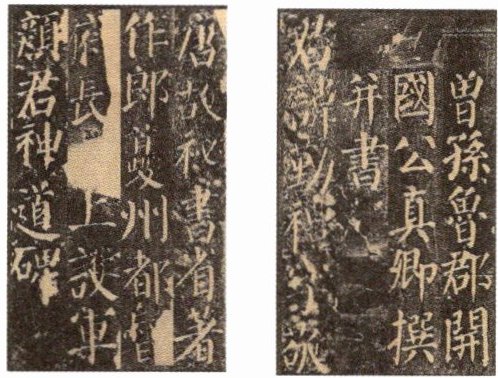 唐故祕書省著
作郎夔州都督
府長上護軍
顏君神道碑
曾孫魯郡開
國公真卿撰
并書
君諱勤禮字敬